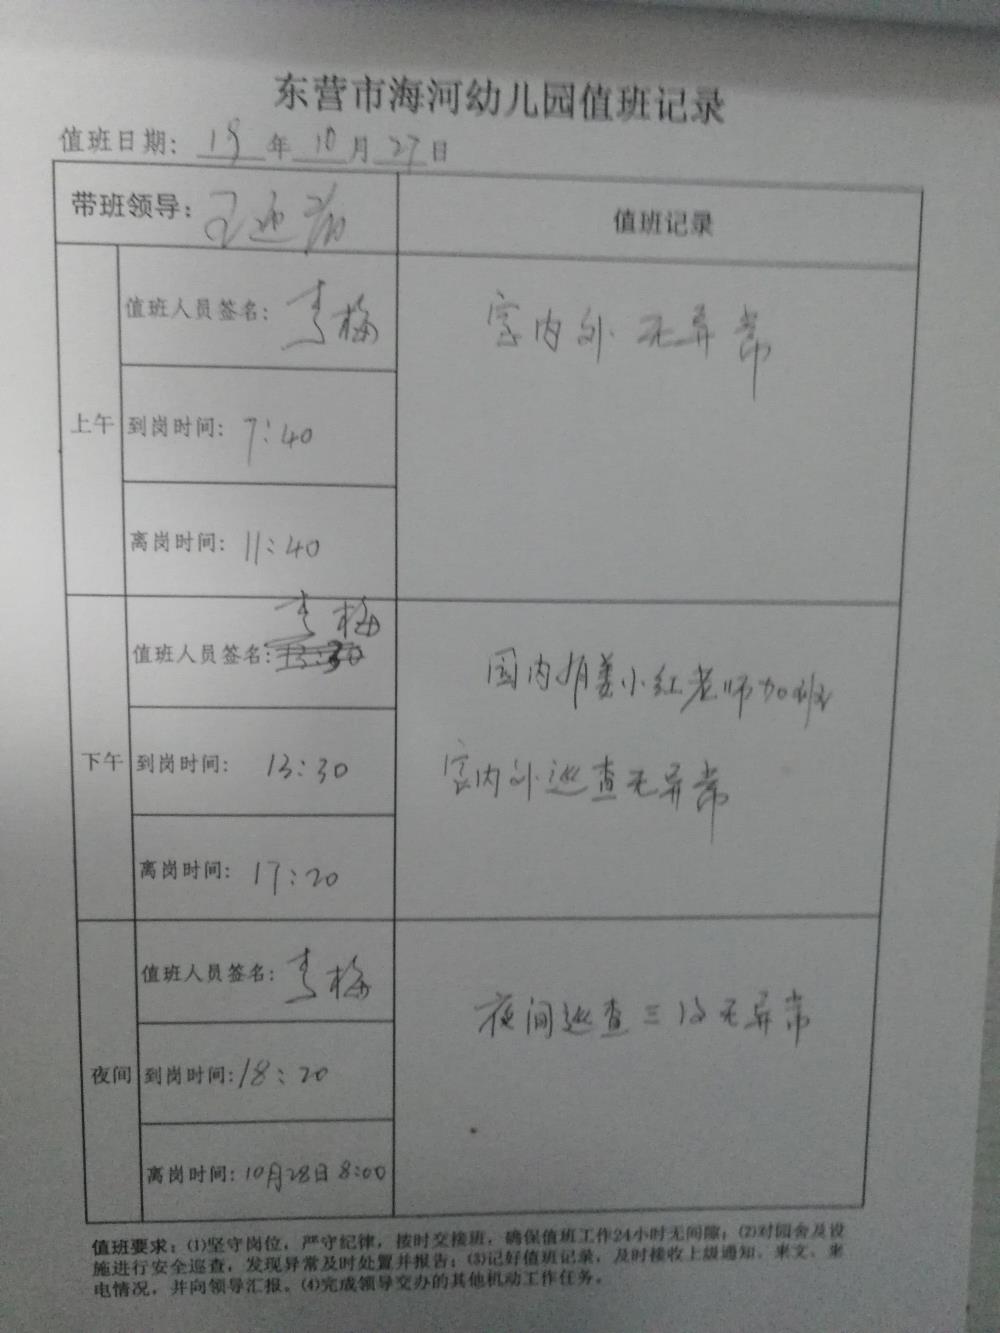 东营市海河幼儿园值班记录
值班日期: 19 年 10 月 27 日
带班领导: 王迎
值班记录
上午
值班人员签名: 李梅
室内外无异常
到岗时间: 7:40
离岗时间: 11:40
下午
值班人员签名: 李梅
园内有姜小红老师加班
室内外巡查无异常
到岗时间: 13:30
离岗时间: 17:20
夜间
值班人员签名: 李梅
夜间巡查三次无异常
到岗时间: 18:20
离岗时间: 10月28日 8:00
值班要求: (1)坚守岗位, 严守纪律, 按时交接班, 确保值班工作24小时无间隙; (2)对园舍及设
施进行安全巡查, 发现异常及时处置并报告; (3)记好值班记录, 及时接收上级通知、来文、来
电情况, 并向领导汇报。(4)完成领导交办的其他机动工作任务。